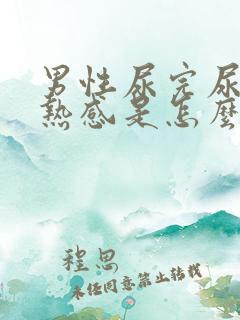 男性尿完尿
熱感是怎麼
程思
未经同意禁止转载